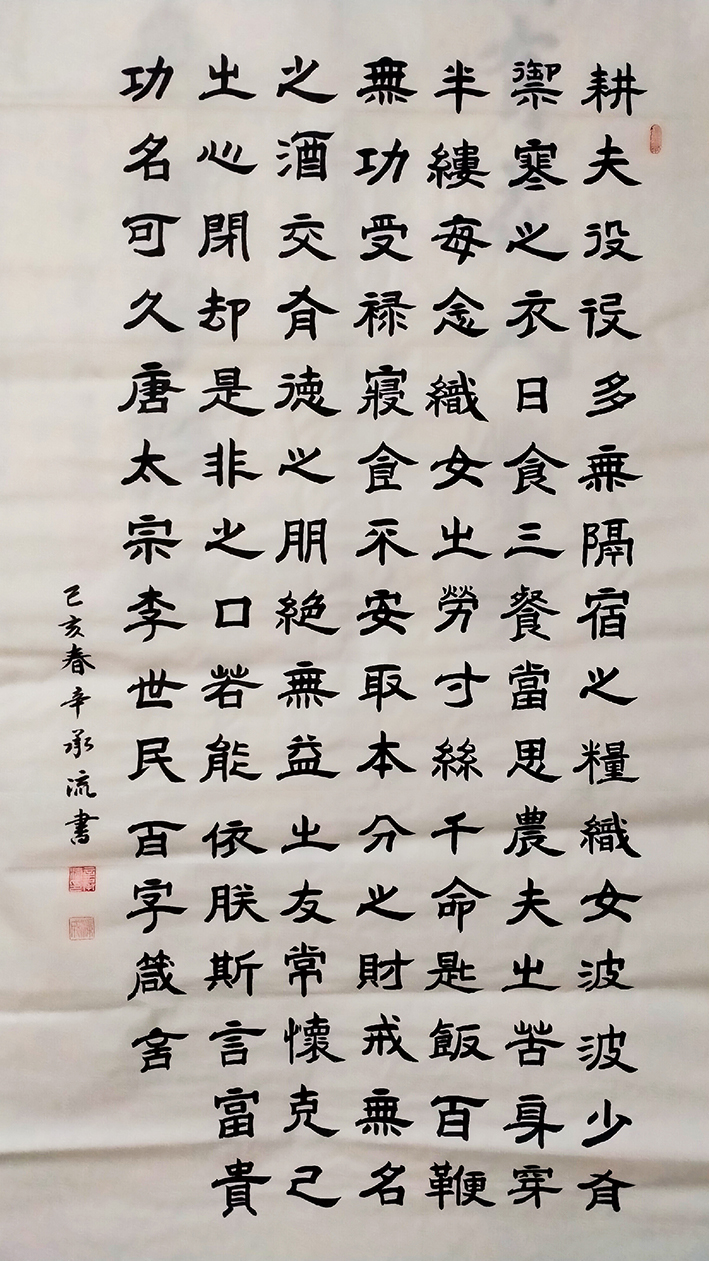 耕夫役役多無隔宿之糧織女波波少有
禦寒之衣日食三餐當思農夫之苦身穿
半縷每念織女之勞寸絲千命匙飯百鞭
無功受禄寢食不安取本分之財戒無名
之酒交有德之朋絶無益之友常懷克己
之心閉却是非之口若能依朕斯言富貴
功名可久唐太宗李世民百字箴言
己亥春辛承流書